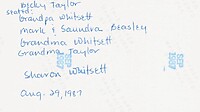 Becky Taylor
seated:
Grandpa Whitsett
mark & Saundra Beasley
Grandma Whitsett
Grandma Taylor
Sharon Whitsett
Aug. 29, 1987